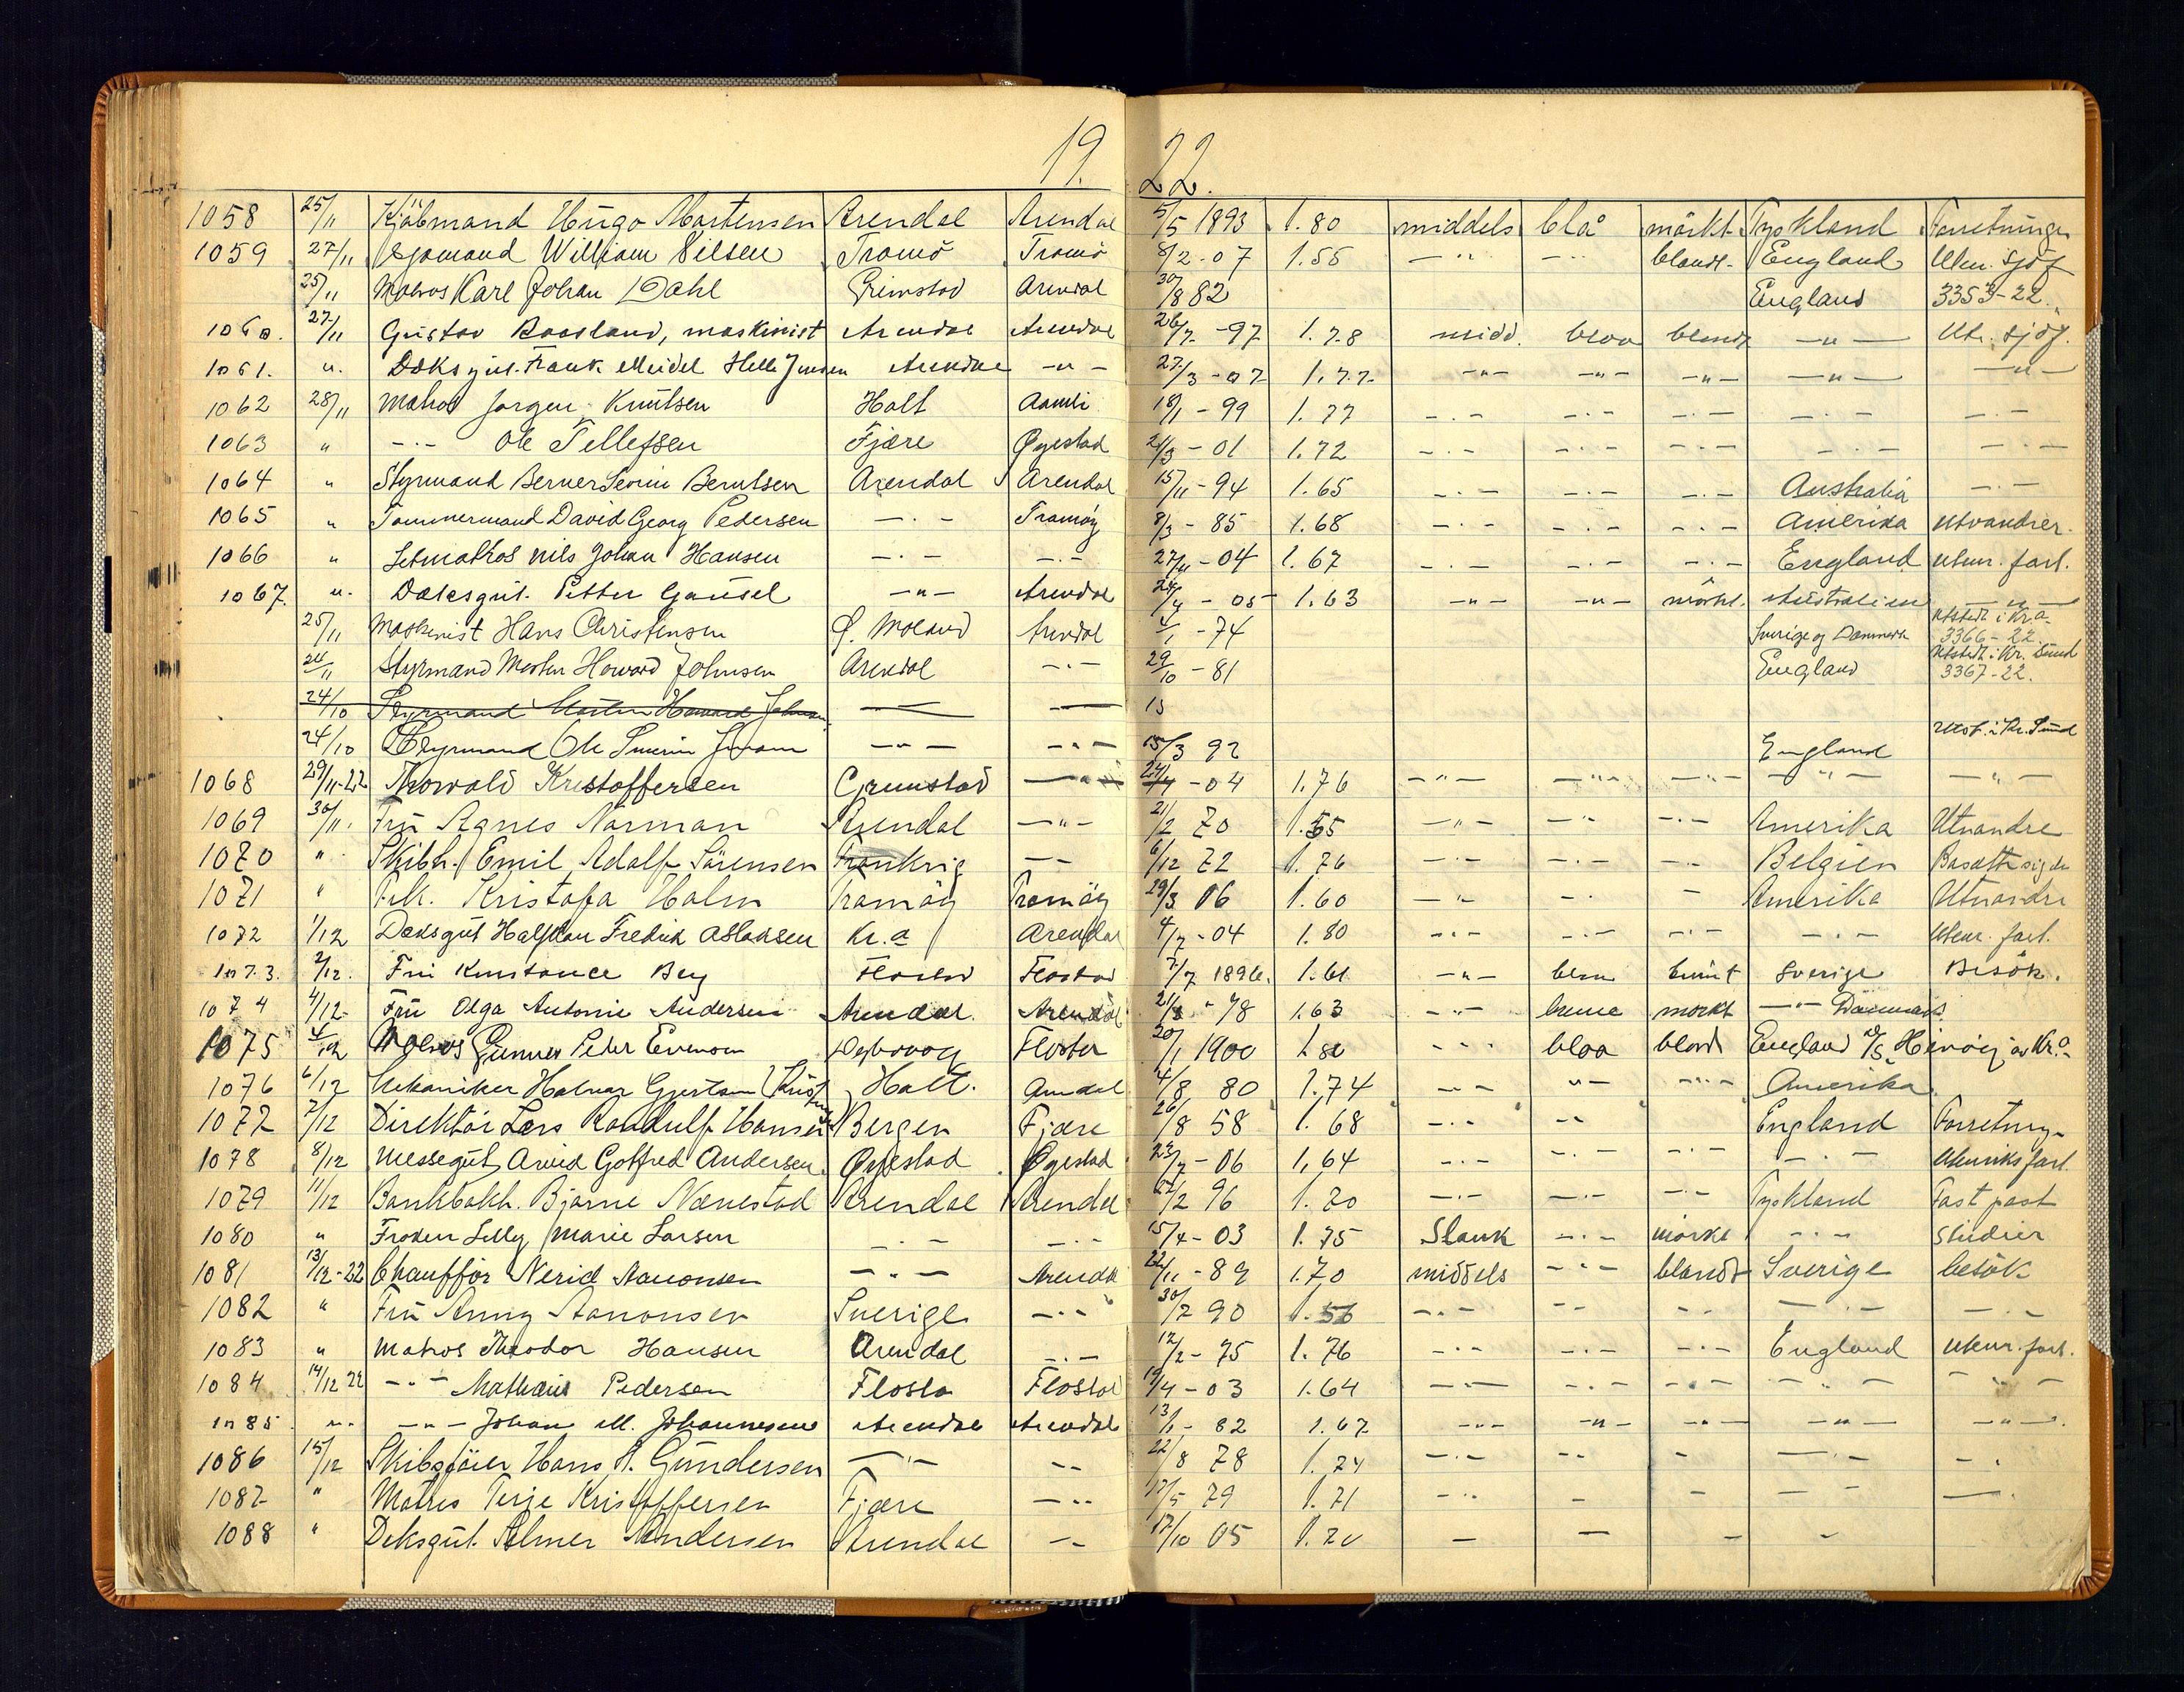 19 22.
1058 25/11 Kjöbmand Hugo Mortensen Arendal Arendal 5/5 1893 1.80 middels blå mörkt Tyskland Forretninger
1059 27/11 Sjömand William Nilsen Tromö Tromö 8/2-07 1.55 -"- -"- blondt- England Uten. sjöf
25/11 Matros Karl Johan Dahl Grimstad Arendal 30/8 82 England 3353-22.
1060. 27/11 Gustav Roasland, maskinist Arendal Arendal 26/7-97 1.78 midd. blaa blondt -"- Utr. sjöf.
1061. ". Dæksgut. Frank Meidel Helle Jensen Arendal -"- 27/3-07 1.77. -"- -"- -"- -"- -"-
1062 28/11 Matros Jørgen Knutsen Holt Aamli 18/1-99 1.77 -.- -.- -.- -.- -.-
1063 " -.- Ole Tellefsen Fjære Øyestad 21/3-01 1.72 -.- -.- -.- -.- -.-
1064 " Styrmand Berner Severin Berntsen Arendal Arendal 15/11-94 1.65 -.- -.- -.- Australia -.-
1065 " Tømmermand David Georg Pedersen -.- Tromøy 8/3-85 1.68 -.- -.- -.- Amerika Utvandrer.
1066 " Letmatros Nils Johan Hansen -.- -.- 27/11-04 1.67 -.- -.- -.- England Utenr. fart.
1067. ". Dæksgut. Petter Gausel -"- Arendal 24/4-05 1.63 -"- -"- mörkt. Australien -"-
25/11 Maskinist Hans Christensen Ø. Moland Arendal 4/1-74 Sverige og Danmark Utstedt i Kr.a. 3366-22
24/11 Styrmand Morten Howard Johnsen Arendal -.- 29/10-81 England Utstedt i Kr. Sund 3367-22.
24/10 Styrmand Morten Howard Johnsen — — 15
24/10 Styrmand Ole Severin -"- -"- 15/3 92 England Utst. i Kr. Sund
1068 29/11-22 Thorvald Kristoffersen Grimstad -"- 24/4-04 1.76 -"- -"- -"- -"- -"-
1069 30/11. Fru Agnes Norman Arendal -"- 21/2 70 1.65 -"- -"- -.- Amerika Utvandre
1070 " Skibh. Emil Adolf Sörensen Frankrig -- 6/12 72 1.76 -.- -.- -.- Belgien Bosætte sig der
1071 " Frk. Kristofa Holm Tromöy Tromöy 29/3 06 1.60 -"- -.- - Amerika Utvandre
1072 1/12 Dæksgut Halfdan Fredrik Aslaksen Kr.a Arendal 4/7-04 1.80 -.- -.- -.- -.- Utenr. fart.
1073. 2/12. Fru Konstance Berg Flosta Flostad 7/7 1896. 1.61 -"- blaa brunt Sverige Besök.
1074 4/12- Fru Olga Antonie Andersen Arendal. Arendal 21/8-78 1.63 -"- brune mörkt -"- Danmark
1075 4/12 Matros Gunner Peder Evensen Dybvaag Flosta 20/1 1900 1.80 -"- blaa blond England D/S. Hinöy av Kr.a-
1076 6/12 Mekaniker Halvor Gjertsen Holt. Arendal 4/8 80 1.74 -"- "- -"- Amerika.
1077 7/12 Direktör Lars Randulf Hansen Bergen Fjære 26/8 58 1.68 -.- -- England Forretning
1078 8/12 Messegut Arvid Gotfred Andersen. Øyestad. Øyestad 23/7-06 1,64 -.- -.- -.- -.- Utenriks fart.
1079 11/12 Bankbokh. Bjarne Nænestad Arendal Arendal 1.70 -.- -.- -.- Tyskland Fast post
1080 " Frøken Lilly Marie Larsen -.- -.- 15/4-03 1.75 Slank -.- mörke -.- Studier
1081 13/12-22 Chaufför Nerid Aanonsen -"- Arendal 22/11-89 1.70 middels -"- blondt Sverige besök
1082 " Fru Anny Aanonsen Sverige -.- 30/7 90 1.56 -.- -- -.- -.- -.-
1083 " Matros Theodor Hansen Arendal -.- 12/2-75 1.76 -.- -.- -.- England Utenr. fart.
1084 14/12 22 -"- Mathæus Pedersen Flosta Flostad 19/4-03 1.64 -.- -.- -.- -"- -"-
1085. ". -"- Johan M. Johannesen Arendal Arendal 13/1-82 1.67 -"- -"- -"- -"- -"-.
1086 15/12 Skibsfører Hans A. Gundersen -"- -- 22/8 78 1.74 -.- -- - -.- -.
1087 " Matros Terje Kristoffersen Fjære -.- 17/5 79 1.71 -.- - - -- -.
1088 " Deksgut. Almer Andersen Arendal -- 17/10 05 1.70 - - - -